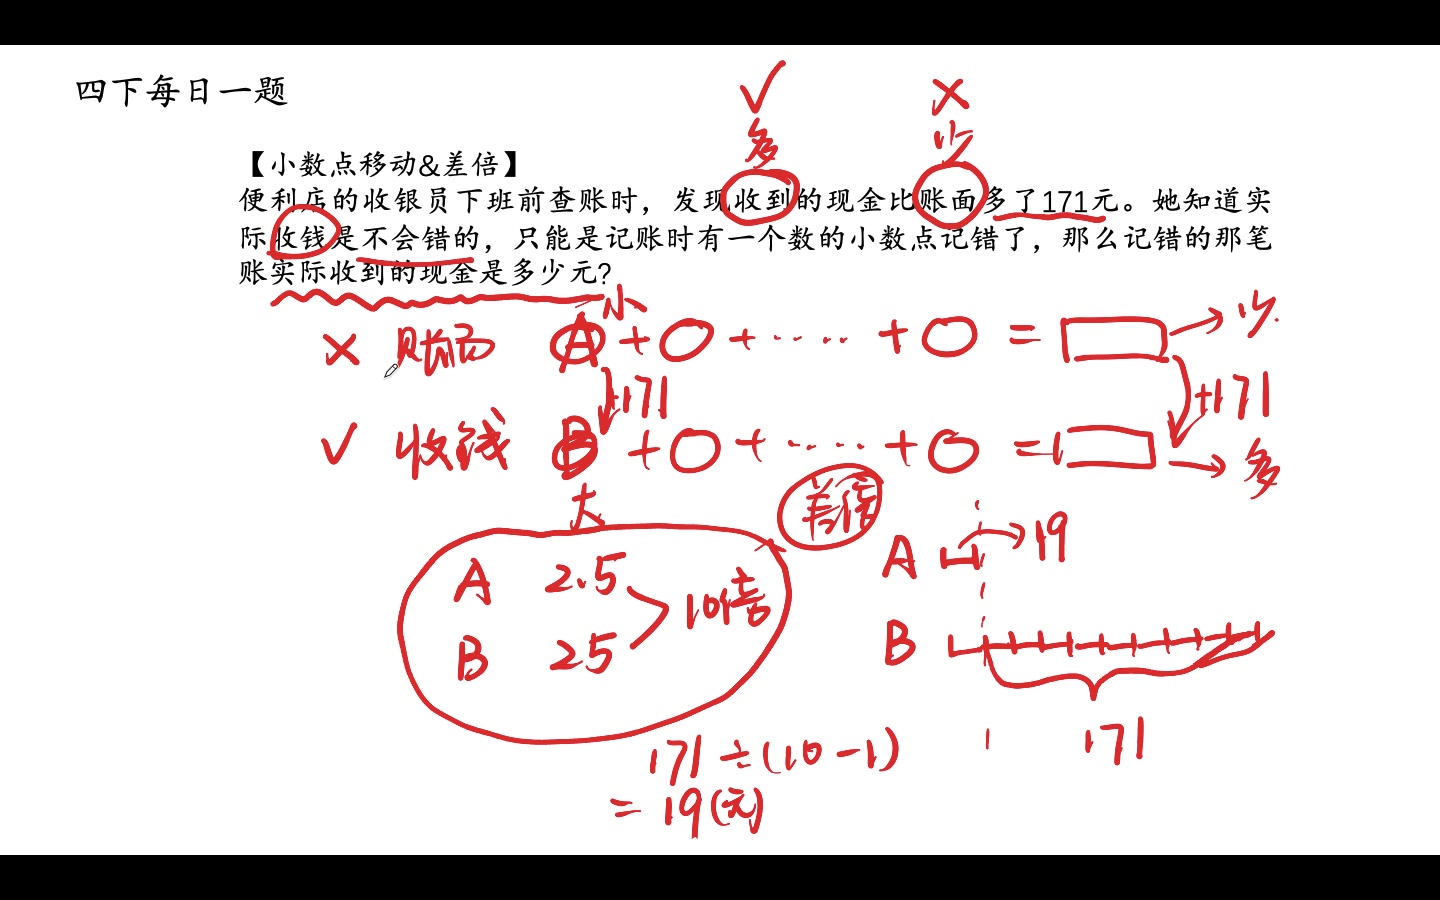 四下每日一题
✓ ×
多 少
【小数点移动&差倍】
便利店的收银员下班前查账时，发现收到的现金比账面多了171元。她知道实
际收钱是不会错的，只能是记账时有一个数的小数点记错了，那么记错的那笔
账实际收到的现金是多少元?
小
× 账面 A + ○ + ····· + ○ = □ → 少
+171 +171
✓ 收钱 B + ○ + ····· + ○ = □ → 多
大
差倍
A 2.5
10倍
B 25
A 19
B
171
171÷(10-1)
=19(元)